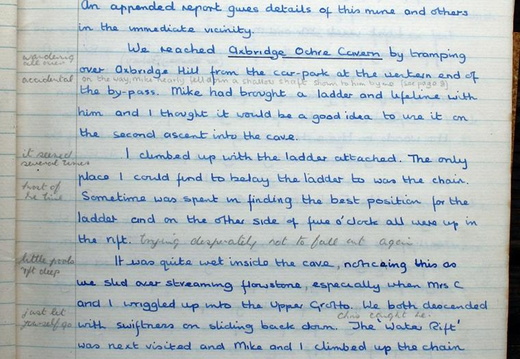 An appended report gives details of this mine and others
in the immediate vicinity.
We reached Axbridge Ochre Cavern by tramping
wandering
all over
over Axbridge Hill from the car-park at the western end of
accidental
on the way, Mike nearly fell down a shallow shaft shown to him by me (see page 3)
the by-pass. Mike had brought a ladder and lifeline with
him and I thought it would be a good idea to use it on
the second ascent into the cave.
it seemed
several times
I climbed up with the ladder attached. The only
place I could find to belay the ladder to was the chain.
most of
the time
Sometime was spent in finding the best position for the
ladder and on the other side of five o'clock all were up in
the rift. trying desperately not to fall out again
little pools
rift deep
It was quite wet inside the cave, noticing this as
we slid over streaming flowstone, especially when Mrs C
and I wriggled up into the Upper Grotto. We both descended
just let
yourself go
Chris caught me.
with swiftness on sliding back down. The 'Water Rift'
was next visited and Mike and I climbed up the chain